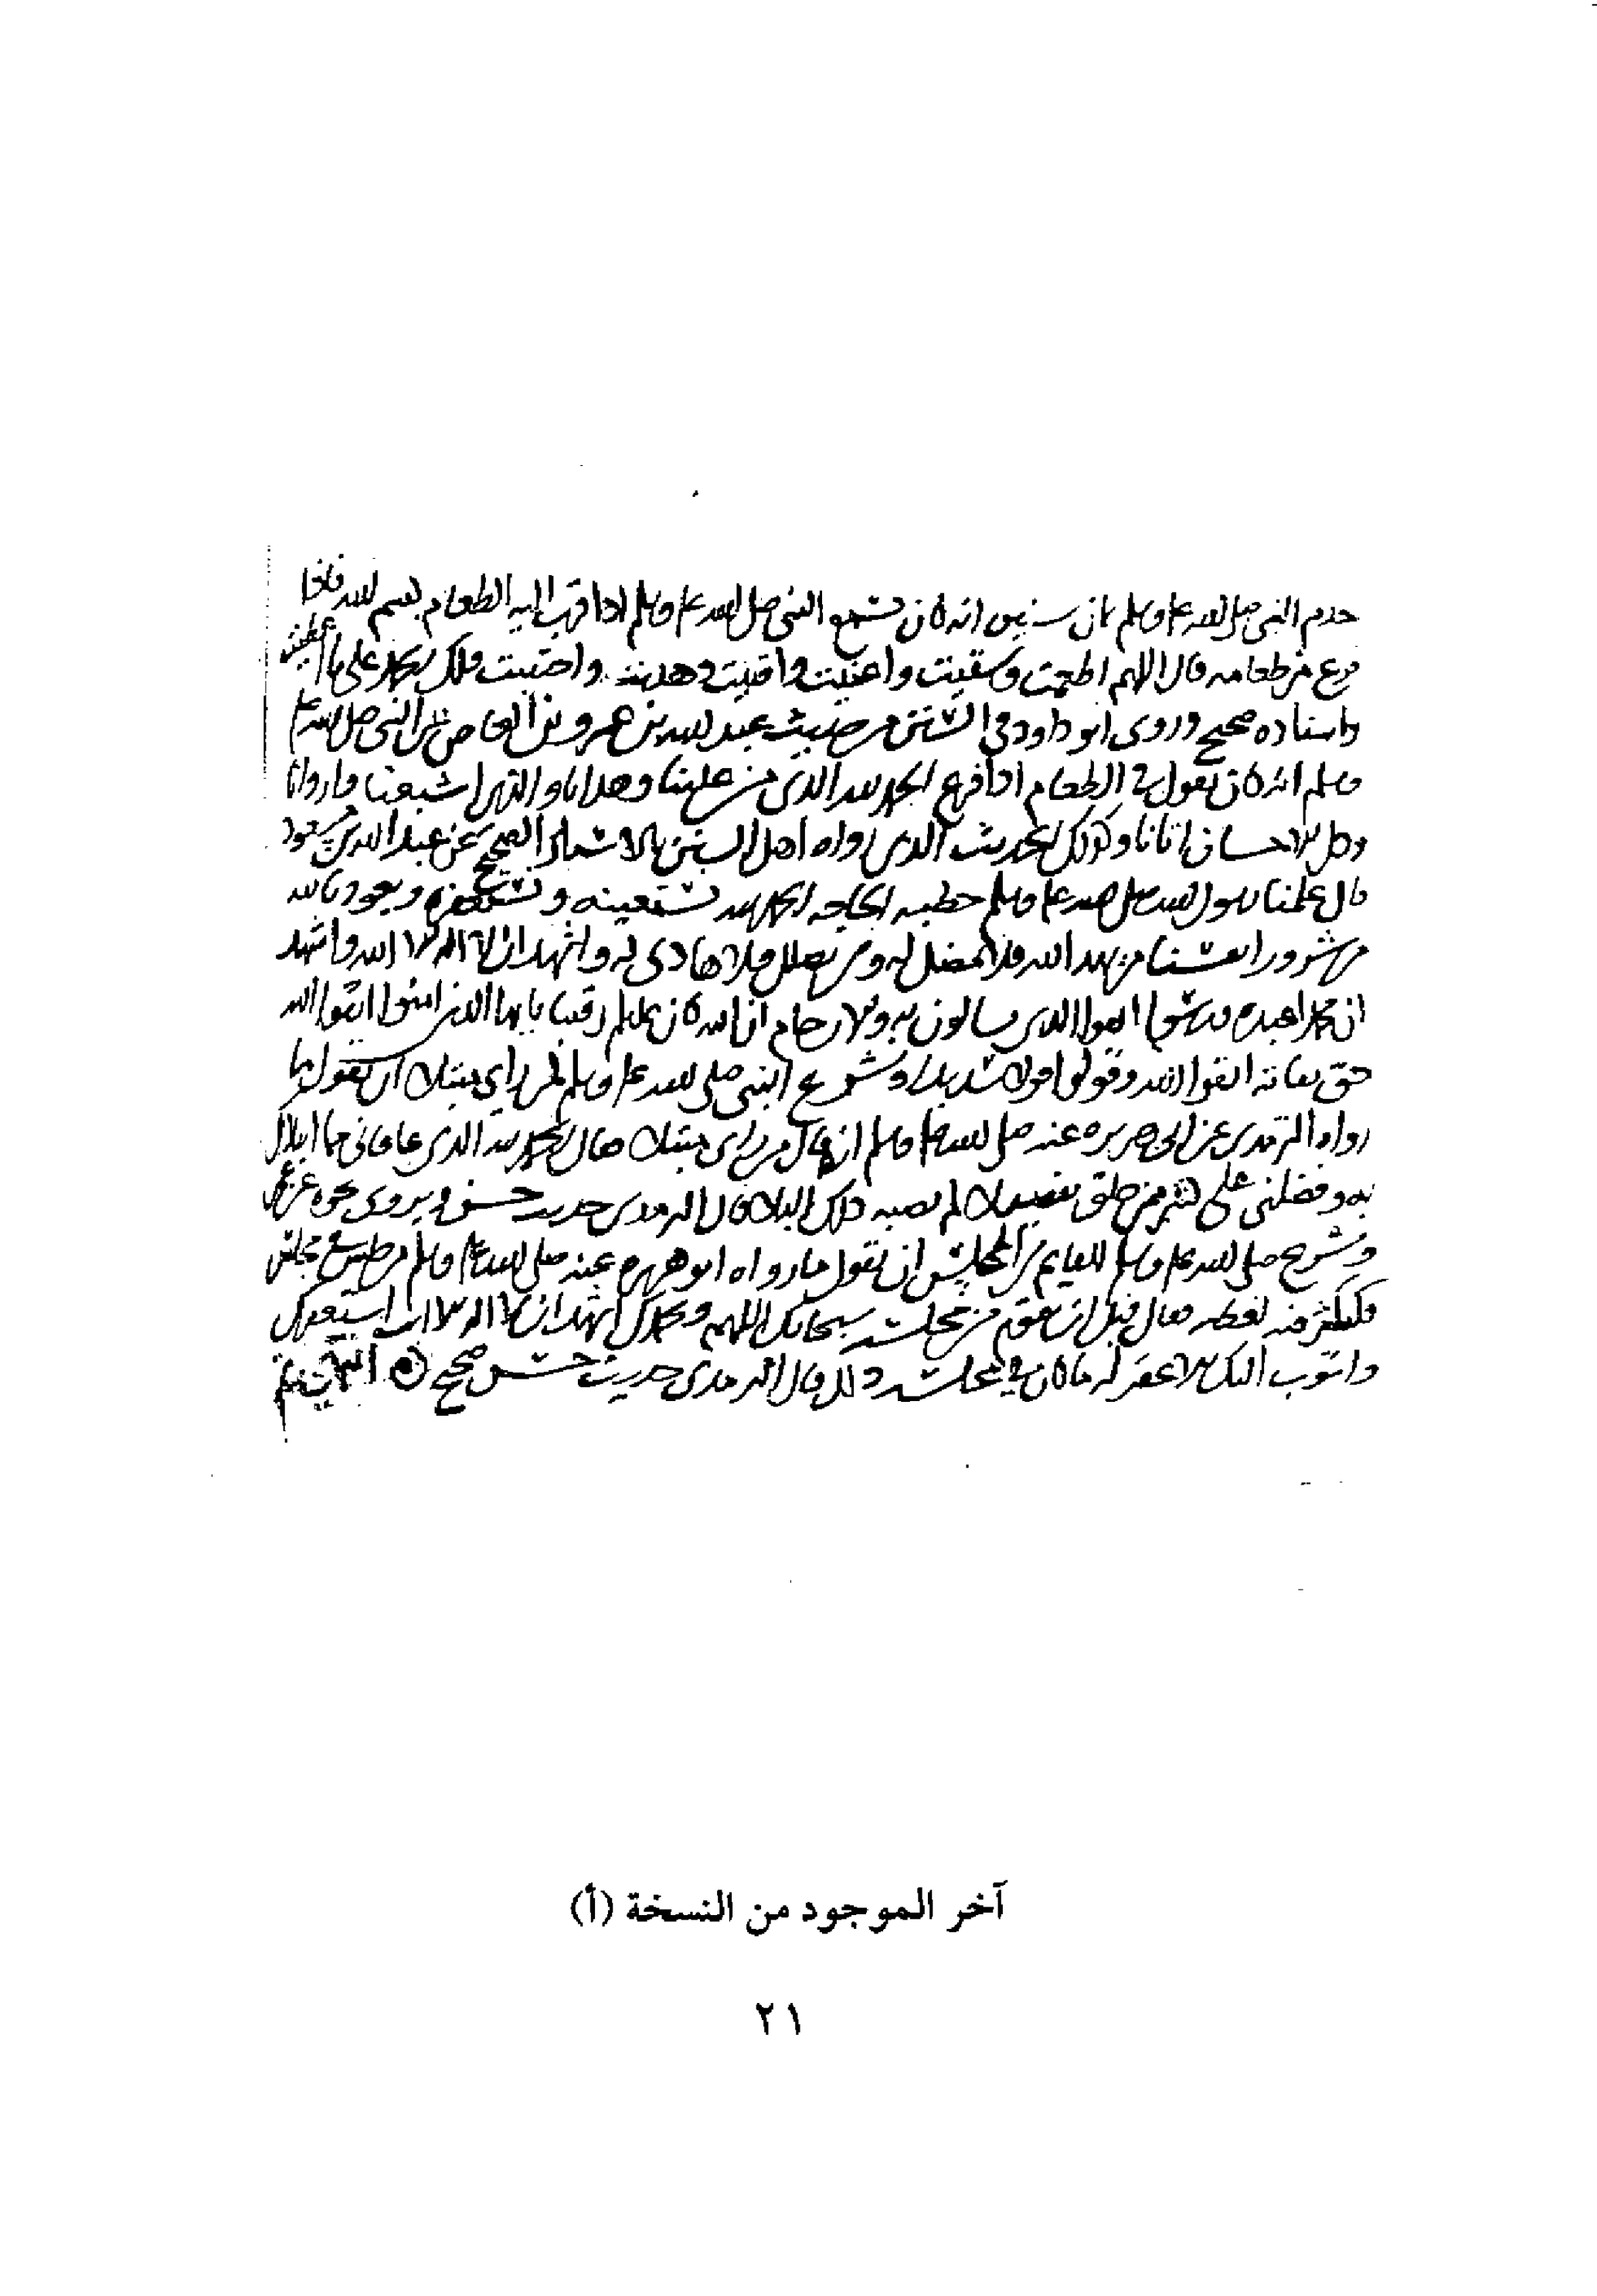 خدم النبي صلى الله عليه وسلم ثمان سنين انه كان يسمع النبي صلى الله عليه وسلم اذا قرب اليه الطعام بسم الله فاذا
فرغ من طعامه قال اللهم اطعمت وسقيت واغنيت واقنيت وهديت واجتبيت فلك الحمد على ما اعطيت
واسناده صحيح وروى ابو داود في السنن من حديث عبد الله بن عمرو بن العاص عن النبي صلى الله عليه
وسلم انه كان يقول في الطعام اذا فرغ الحمد لله الذي من علينا وهدانا والذي اشبعنا واروانا
وكل الاحسان اتانا وكذلك الحديث الذي رواه اهل السنن بالاسناد الصحيح عن عبد الله بن مسعود
قال علمنا رسول الله صلى الله عليه وسلم خطبه الحاجه الحمد لله نستعينه ونستغفره ونعوذ بالله
من شرور انفسنا من يهد الله فلا مضل له ومن يضلل فلا هادي له واشهد ان لا اله الا الله واشهد
ان محمدا عبده ورسوله اتقوا الله الذي تسالون به والارحام ان الله كان عليكم رقيبا يا ايها الذين امنوا اتقوا الله
حق تقاته اتقوا الله وقولوا قولا سديدا وشرع النبي صلى الله عليه وسلم لمن راى مبتلا ان يقول ما
رواه الترمذي عن ابي هريره عنه صلى الله عليه وسلم انه قال من راى مبتلا فقال الحمد لله الذي عافاني مما ابتلاك
به وفضلني على كثير ممن خلق تفضيلا لم يصبه ذلك البلا قال الترمذي حديث حسن ويروى نحوه عن عمر
وشرع صلى الله عليه وسلم للقايم من المجلس ان يقول ما رواه ابو هريره عنه صلى الله عليه وسلم من جلس في مجلس
فكثر فيه لغطه فقال قبل ان يقوم من مجلسه سبحانك اللهم وبحمدك اشهد ان لا اله الا انت استغفرك
واتوب اليك الا غفر له ما كان في مجلسه ذلك قال الترمذي حديث حسن صحيح
آخر الموجود من النسخة (أ)
٢١